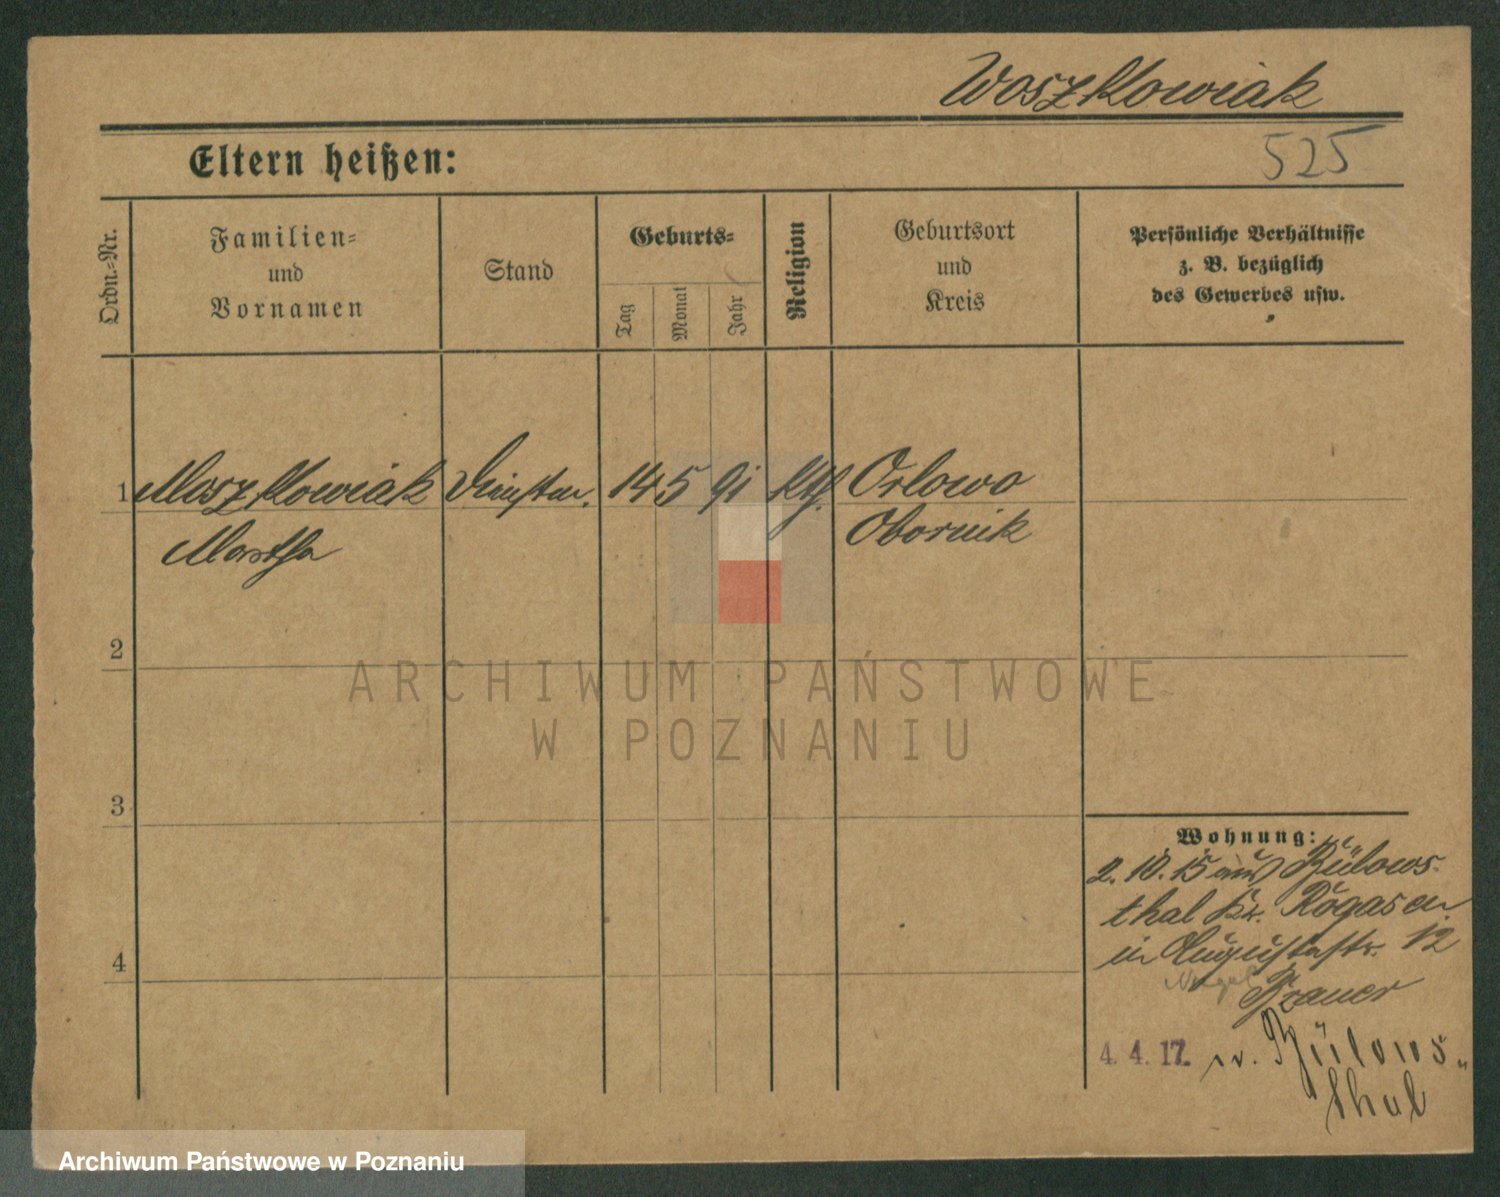 Woszkowiak
Eltern heißen:
525
Ordn.-Nr.
Familien-
und
Vornamen
Stand
Geburts-
Tag
Monat
Jahr
Religion
Geburtsort
und
Kreis
Persönliche Verhältnisse
z. B. bezüglich
des Gewerbes usw.
1 Woszkowiak 14 5 91 Kth. Orlowo
Martha Obornik
2
3
4
Wohnung:
2.10.15 aus Bülows-
thal Kr. Rogasen
in Augustastr. 12
Brauer
4.4.17. n. Bülows-
thal
ARCHIWUM PAŃSTWOWE
W POZNANIU
Archiwum Państwowe w Poznaniu